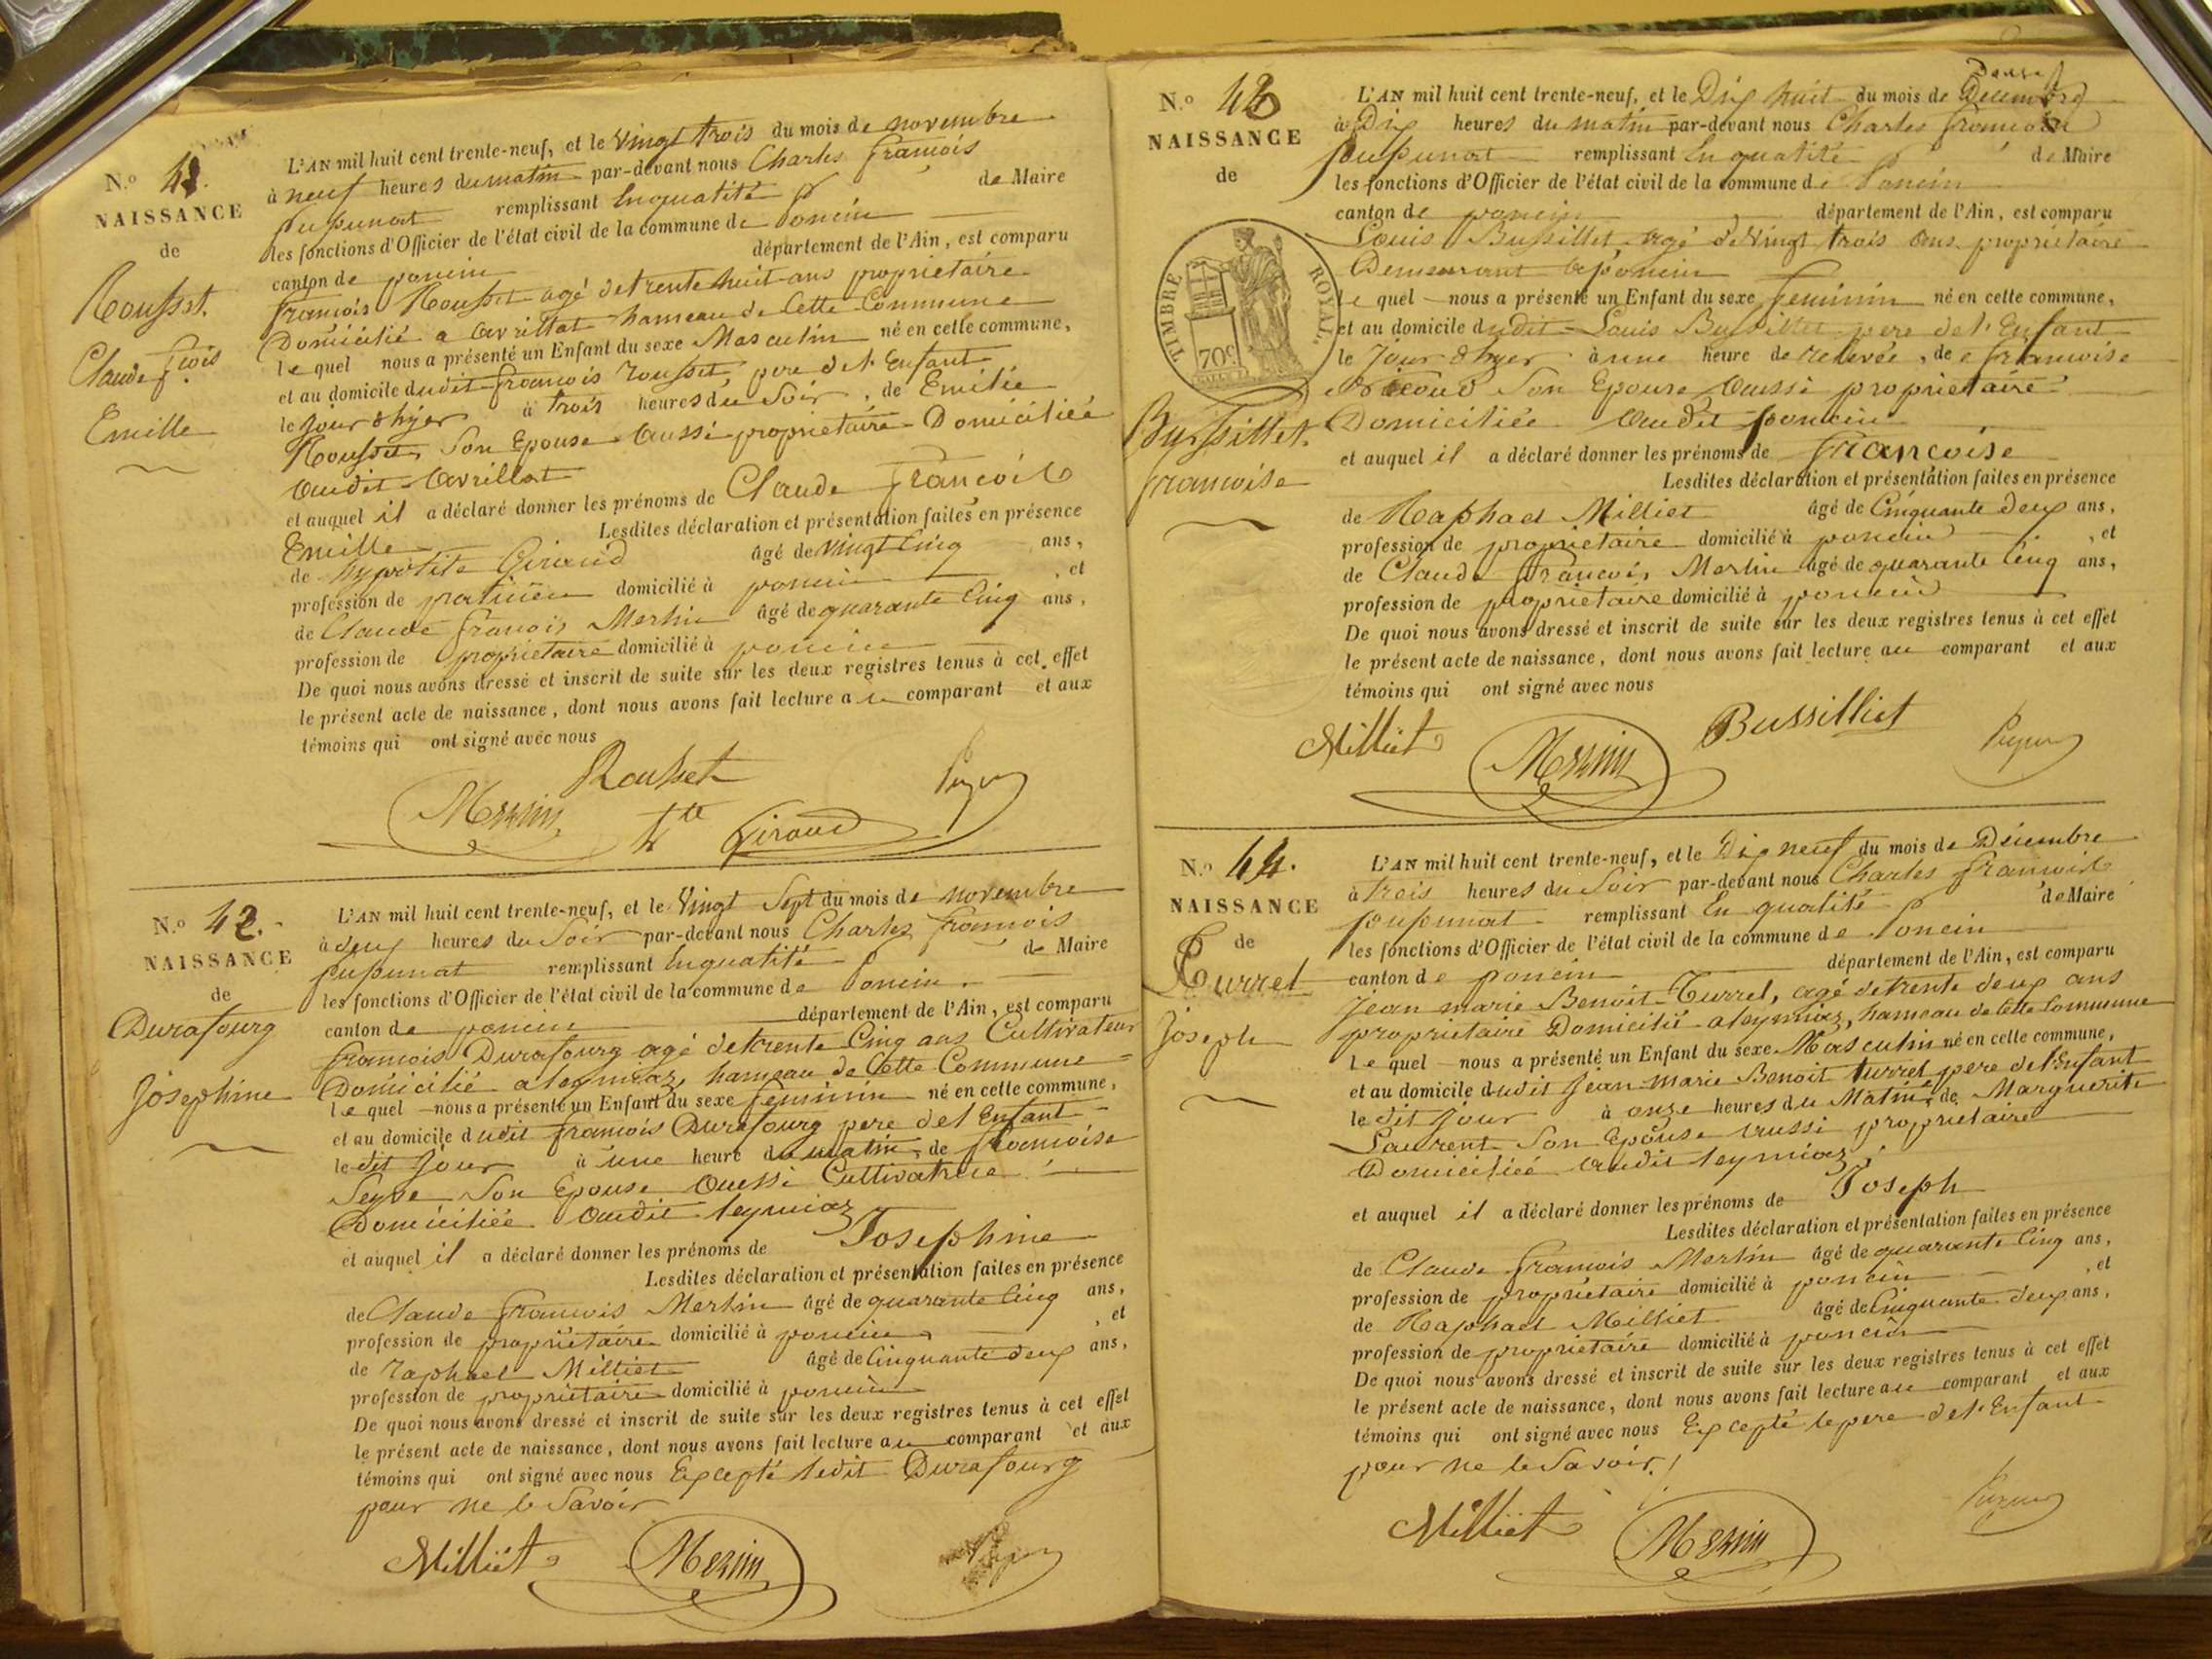 N.o 41.
NAISSANCE
de
Rousset.
Claude fçois
Emille
L'AN mil huit cent trente-neuf, et le vingt trois du mois de novembre
à neuf heures du matin par-devant nous Charles francois
remplissant En qualité de Maire
les fonctions d'Officier de l'état civil de la commune de Poncin
canton de poncin département de l'Ain, est comparu
francois Rousset agé de trente huit ans propriétaire
Domicilié a avrillat hameau de Cette Commune
le quel nous a présenté un Enfant du sexe Masculin né en cette commune,
et au domicile dudit francois rousset pere de l'Enfant
le jour d'hyer à trois heures du Soir, de Emilie
Rousset Son Epouse aussi propriétaire Domiciliée
audit avrillat
et auquel il a déclaré donner les prénoms de Claude francois
Emille Lesdites déclaration et présentation faites en présence
de hypolite Giraud âgé de vingt Cinq ans,
profession de praticien domicilié à poncin, et
de Claude francois Merlin âgé de quarante Cinq ans,
profession de propriétaire domicilié à poncin
De quoi nous avons dressé et inscrit de suite sur les deux registres tenus à cet effet
le présent acte de naissance, dont nous avons fait lecture au comparant et aux
témoins qui ont signé avec nous
Rousset
Merlin Giraud
N.o 42.
NAISSANCE
de
Durafourg
Josephine
L'AN mil huit cent trente-neuf, et le Vingt Sept du mois de novembre
à deux heures du Soir par-devant nous Charles francois
remplissant En qualité de Maire
les fonctions d'Officier de l'état civil de la commune de Poncin
canton de poncin département de l'Ain, est comparu
francois Durafourg agé de trente Cinq ans Cultivateur
Domicilié a leymiaz, hameau de Cette Commune
le quel nous a présenté un Enfant du sexe feminin né en cette commune,
et au domicile dudit francois Durafourg pere de l'Enfant
le dit jour à une heure du matin, de francoise
Seyve Son Epouse aussi Cultivatrice
Domiciliée audit leymiaz
et auquel il a déclaré donner les prénoms de Josephine
Lesdites déclaration et présentation faites en présence
de Claude francois Merlin âgé de quarante Cinq ans,
profession de propriétaire domicilié à poncin, et
de raphael Milliet âgé de Cinquante deux ans,
profession de propriétaire domicilié à poncin
De quoi nous avons dressé et inscrit de suite sur les deux registres tenus à cet effet
le présent acte de naissance, dont nous avons fait lecture au comparant et aux
témoins qui ont signé avec nous Excepté ledit Durafourg
pour ne le Savoir
Milliet Merlin
N.o 43
NAISSANCE
de
TIMBRE ROYAL.
70c
Bussillet.
francoise
L'AN mil huit cent trente-neuf, et le Dix huit du mois de Décembre
à Dix heures du matin par-devant nous Charles francois
remplissant En qualité de Maire
les fonctions d'Officier de l'état civil de la commune de Poncin
canton de poncin département de l'Ain, est comparu
Louis Bussillet agé de vingt trois ans propriétaire
Demeurant a poncin
le quel nous a présenté un Enfant du sexe feminin né en cette commune,
et au domicile dudit Louis Bussillet pere de l'Enfant
le jour d'hyer à une heure de relevée, de francoise
Son Epouse aussi propriétaire
Domiciliée audit poncin
et auquel il a déclaré donner les prénoms de francoise
Lesdites déclaration et présentation faites en présence
de Raphael Milliet âgé de Cinquante deux ans,
profession de propriétaire domicilié à poncin, et
de Claude francois Merlin âgé de quarante Cinq ans,
profession de propriétaire domicilié à poncin
De quoi nous avons dressé et inscrit de suite sur les deux registres tenus à cet effet
le présent acte de naissance, dont nous avons fait lecture au comparant et aux
témoins qui ont signé avec nous
Milliet Merlin Bussilliet
N.o 44.
NAISSANCE
de
Turrel
Joseph
L'AN mil huit cent trente-neuf, et le Dix neuf du mois de Décembre
à trois heures du Soir par-devant nous Charles francois
remplissant En qualité de Maire
les fonctions d'Officier de l'état civil de la commune de Poncin
canton de poncin département de l'Ain, est comparu
Jean marie Benoit Turrel, agé de trente deux ans
propriétaire Domicilié a leymiaz, hameau de Cette Commune
le quel nous a présenté un Enfant du sexe Masculin né en cette commune,
et au domicile dudit Jean marie Benoit turrel pere de l'Enfant
le dit jour à onze heures du Matin, de Marguerite
Laurent Son Epouse aussi propriétaire
Domiciliée audit leymiaz
et auquel il a déclaré donner les prénoms de Joseph
Lesdites déclaration et présentation faites en présence
de Claude francois Merlin âgé de quarante Cinq ans,
profession de propriétaire domicilié à poncin, et
de Raphael Milliet âgé de Cinquante deux ans,
profession de propriétaire domicilié à poncin
De quoi nous avons dressé et inscrit de suite sur les deux registres tenus à cet effet
le présent acte de naissance, dont nous avons fait lecture au comparant et aux
témoins qui ont signé avec nous Excepté le pere de l'Enfant
pour ne le Savoir.
Milliet Merlin